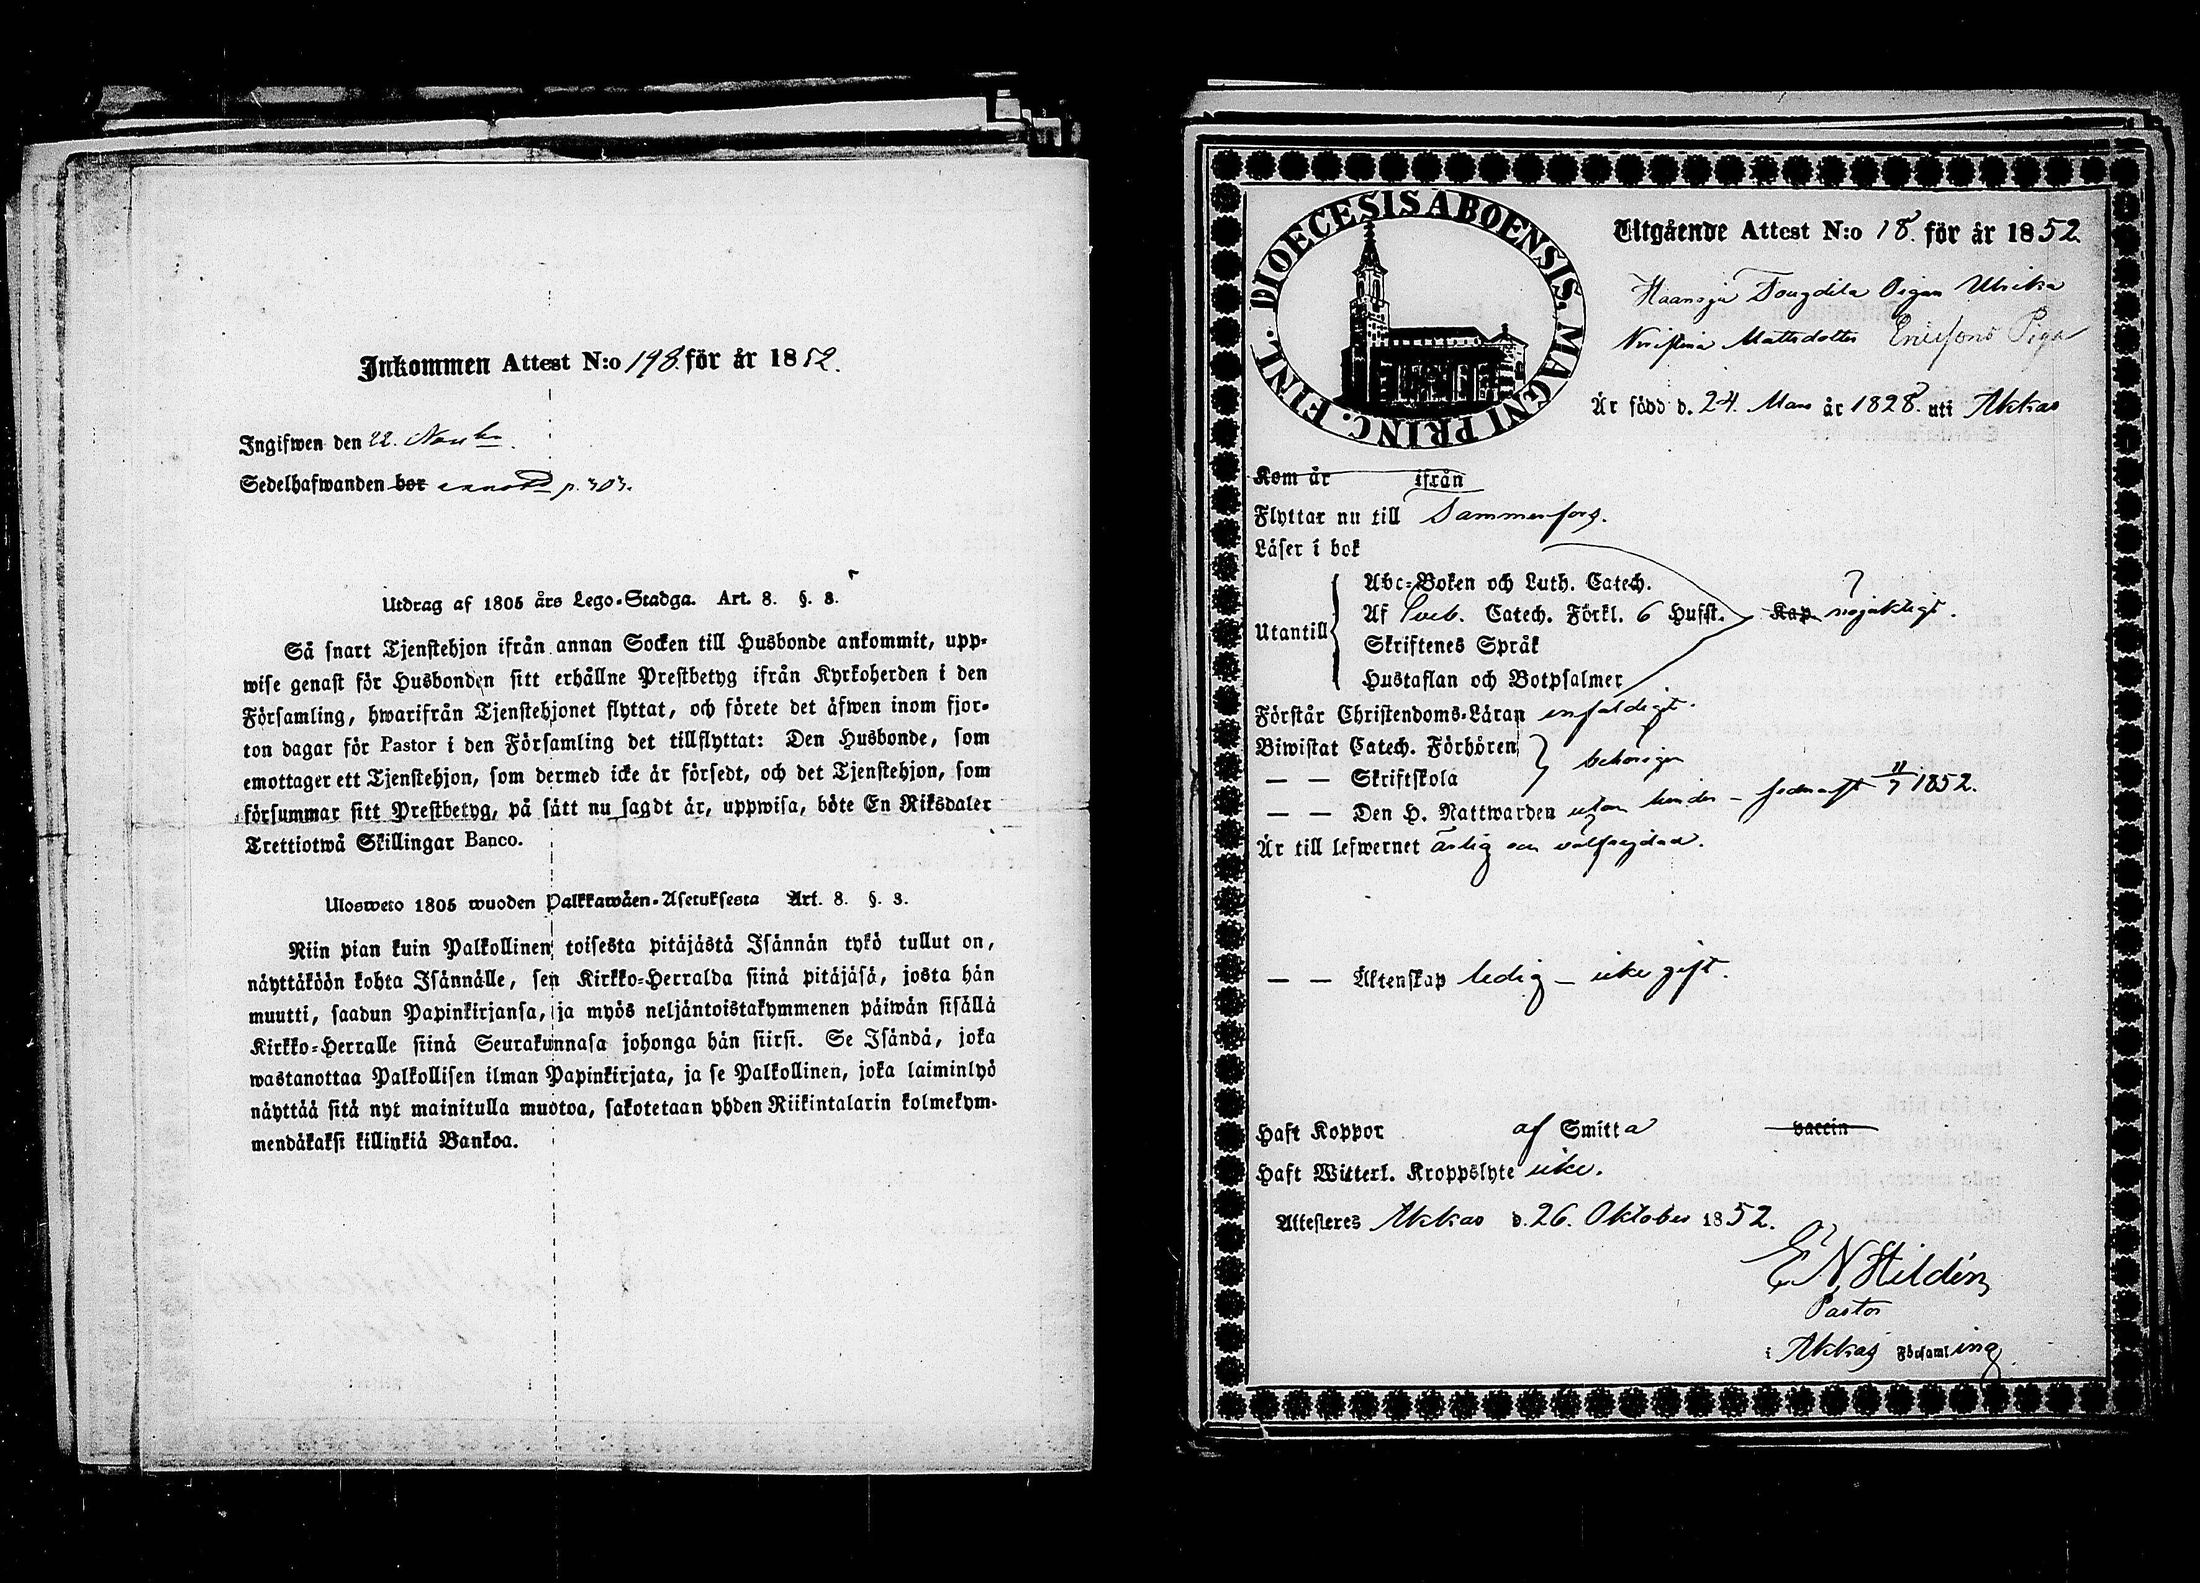 Inkommen Attest N:o 198. för år 1852.
Ingifwen den 22. Novbr.
Sedelhafwanden bor p. 303.
Utdrag af 1805 års Lego-Stadga. Art. 8. §. 3.
Så snart Tjenstehjon ifrån annan Socken till Husbonde ankommit, upp-
wise genast för Husbonden sitt erhållne Prestbetyg ifrån Kyrkoherden i den
Församling, hwarifrån Tjenstehjonet flyttat, och förete det äfwen inom fjor-
ton dagar för Pastor i den Församling det tillflyttat: Den Husbonde, som
emottager ett Tjenstehjon, som dermed icke är försedt, och det Tjenstehjon, som
försummar sitt Prestbetyg, på sätt nu sagdt är, uppwisa, böte En Riksdaler
Trettiotwå Skillingar Banco.
Ulosweto 1805 wuoden Palkkawäen-Asetuksesta Art. 8. §. 3.
Niin pian kuin Palkollinen toisesta pitäjästä Isännän tykö tullut on,
näyttäköön kohta Isännälle, sen Kirkko-Herralda siinä pitäjäsä, josta hän
muutti, saadun Papinkirjansa, ja myös neljäntoistakymmenen päiwän sisällä
Kirkko-Herralle siinä Seurakunnasa johonga hän siirsi. Se Isändä, joka
wastanottaa Palkollisen ilman Papinkirjata, ja se Palkollinen, joka laiminlyö
näyttää sitä nyt mainitulla muotoa, sakotetaan yhden Riikintalarin kolmekym-
mendäkaksi killinkiä Bankoa.
DIOECESIS ABOENSIS. MAGNI PRINC. FINL.
Utgående Attest N:o 18. för år 1852.
Pigan Ulrika
Kristina Mattsdotter Ericsons Piga
Är född d. 24. Mars år 1828. uti Akkas
Kom år ifrån
Flyttar nu till Tammerfors.
Läser i bok
Utantill
Abc-Boken och Luth. Catech.
Af Sveb. Catech. Förkl. 6 Hufst. Kap nöjaktigt.
Skriftenes Språk
Hustaflan och Botpsalmer
Förstår Christendoms-Läran enfaldigt.
Biwistat Catech. Förhören
— — Skriftskola behörigen
— — Den H. Nattwarden utan hinder – sednast 11/7 1852.
Är till lefwernet ärlig och välfrejdad.
— — Äktenskap ledig – icke gift.
Haft Koppor af Smitta vaccin
Haft Witterl. Kroppslyte icke.
Attesteres Akkas d. 26. Oktober 1852.
E N Hildén
Pastor
i Akkas Församling